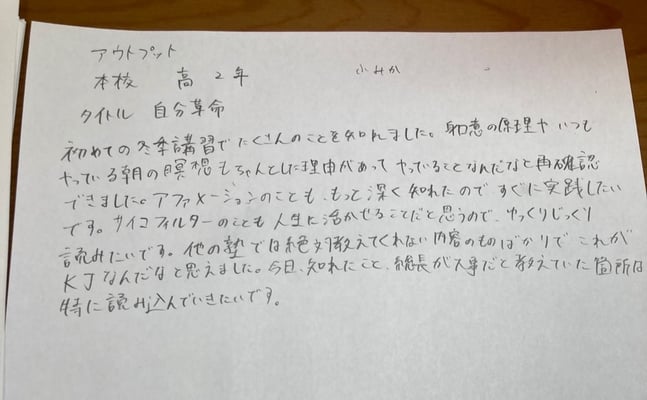 アウトプット
本校 高2年 ふみか
タイトル 自分革命
初めての冬季講習でたくさんのことを知れました。知恵の原理や いつも
やっている朝の瞑想もちゃんとした理由があって やっていることなんだなと再確認
できました。アファメーションのことも、もっと深く知れたので すぐに実践したい
です。サイコフィルターのことも人生に活かせることだと思うので、ゆっくりじっくり
読みたいです。他の塾では絶対教えてくれない内容のものばかりで これが
KJなんだなと思えました。今日、知れたこと、総長が大事だと教えていた箇所は
特に読み込んでいきたいです。